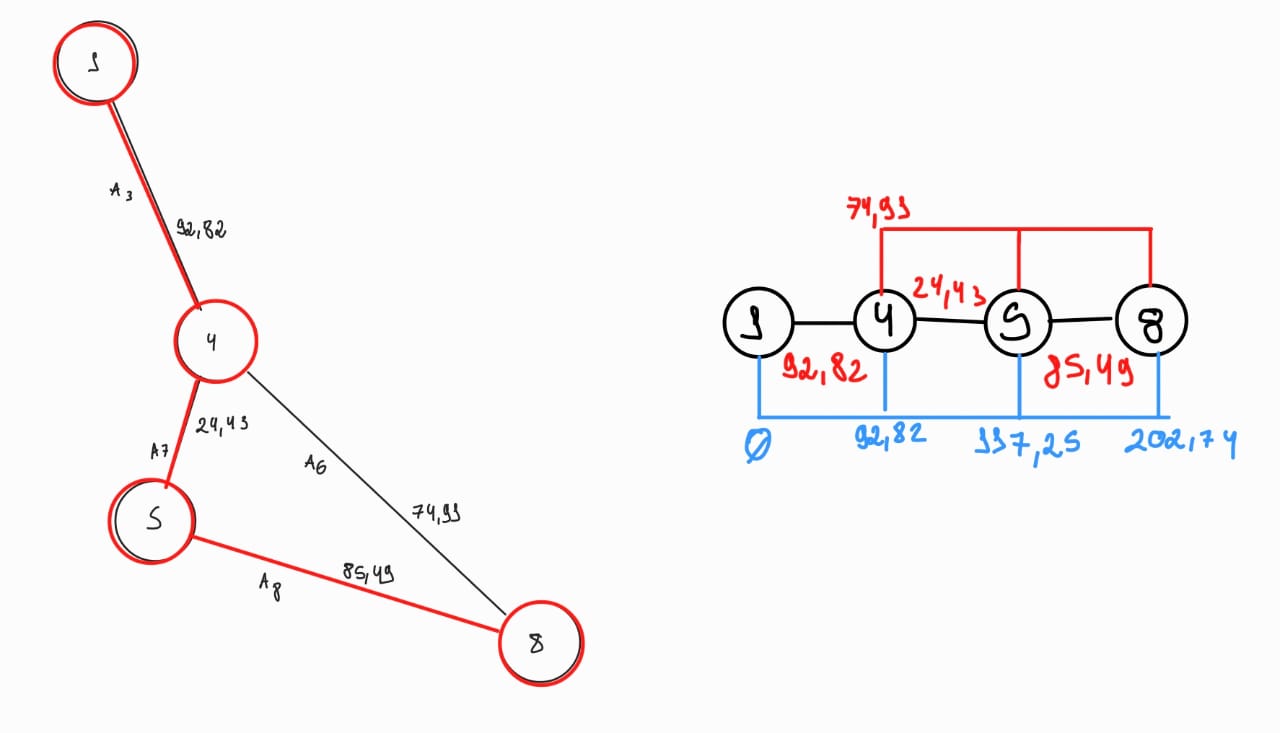 1
A3
92,82
4
24,43
A7
A6
5
74,91
85,49
A8
8
74,91
24,43
1
4
5
8
92,82
85,49
0
92,82
117,25
202,74